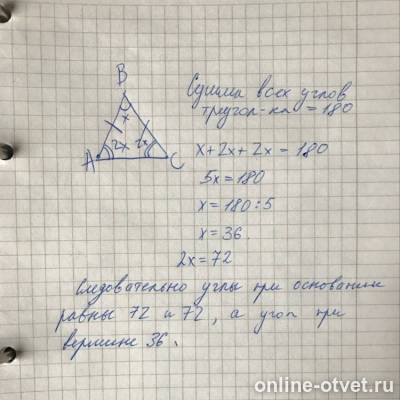 B
x
A 2x 2x C
Сумма всех углов
треугол-ка = 180
x+2x+2x = 180
5x=180
x=180:5
x=36.
2x=72
Следовательно углы при основании
равны 72 и 72, а угол при
вершине 36.
online-otvet.ru